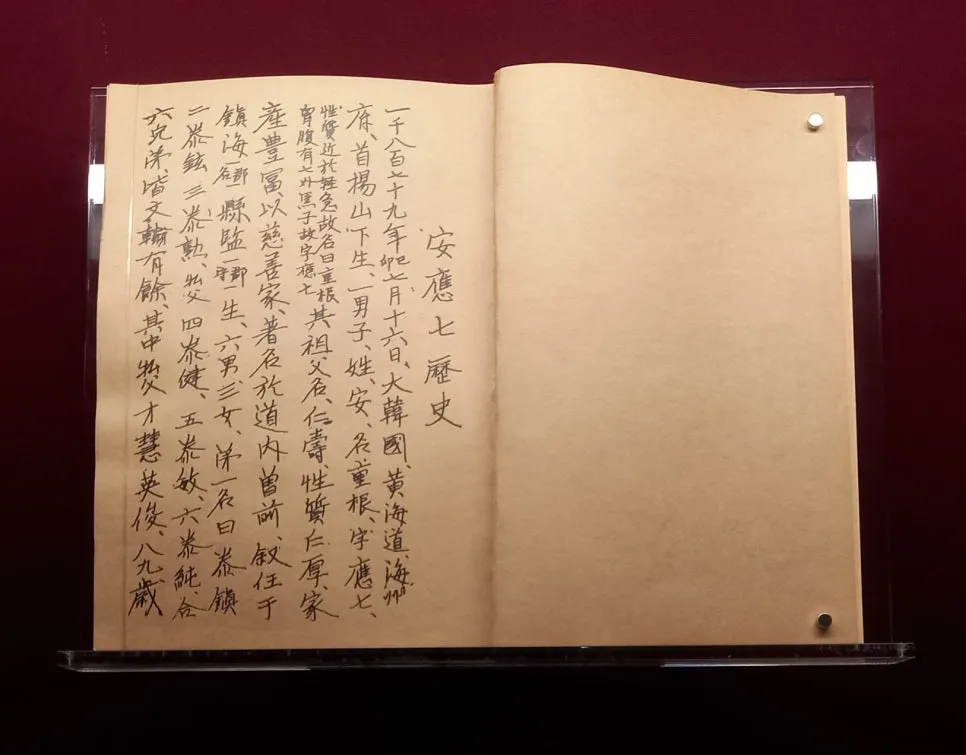 安應七歷史
一千八百七十九年己卯七月十六日、大韓國、黃海道、海州
府、首楊山下生、一男子、姓、安、名、重根、字應七、
性質近於輕急故名曰重根 胷腹有七介黑子故字應七 其祖父名、仁壽、性質仁厚、家
産豊富、以慈善家、著名於道內、曾前、叙任于
鎭海一郡名一縣監一郡守一生、六男、三女、第一名曰泰鎭
二泰鉉 三泰勳、私父 四泰健、五泰敏、六泰純、合
六兄弟、皆文翰有餘、其中私父才慧英俊、八九歲、